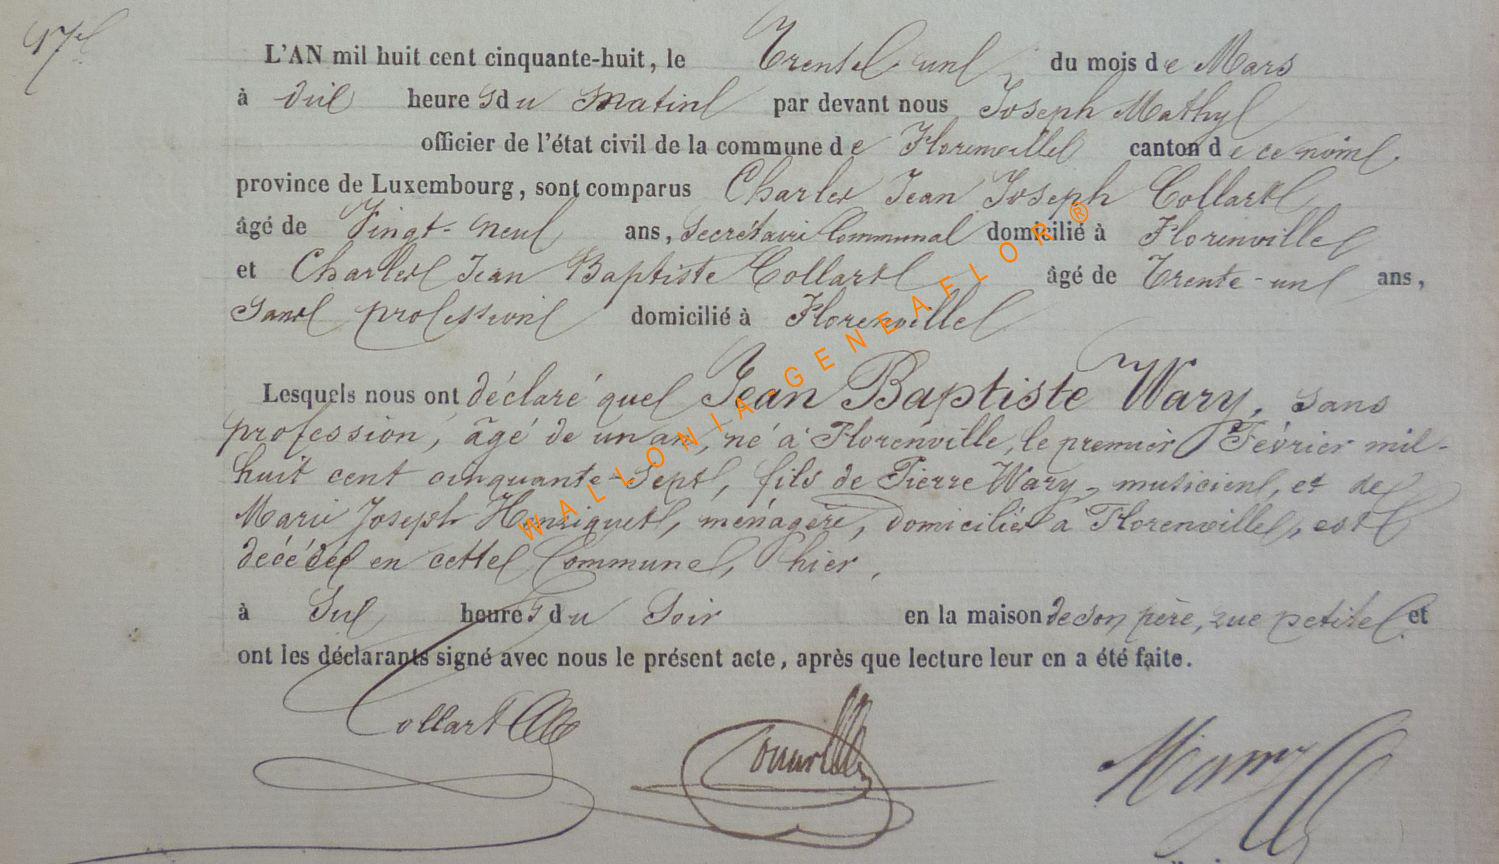 17.e
L'AN mil huit cent cinquante-huit, le Trente-un du mois de Mars
à dix heures du matin par devant nous Joseph Mathy
officier de l'état civil de la commune de Florenville canton de ce nom,
province de Luxembourg, sont comparus Charles Jean Joseph Collart
âgé de Vingt-neuf ans, Secrétaire Communal domicilié à Florenville
et Charles Jean Baptiste Collart âgé de Trente-un ans,
Sans profession domicilié à Florenville
Lesquels nous ont déclaré que Jean Baptiste Wary, sans
profession, âgé de un an, né à Florenville, le premier Février mil-
huit cent cinquante-Sept, fils de Pierre Wary, musicien, et de
Marie Joseph Henriquet, ménagère, domiciliés à Florenville, est
décédé en cette Commune, hier,
à Six heures du Soir en la maison de son père, rue petite, et
ont les déclarants signé avec nous le présent acte, après que lecture leur en a été faite.
Collart
WALLONIA-GENEAFLOR®